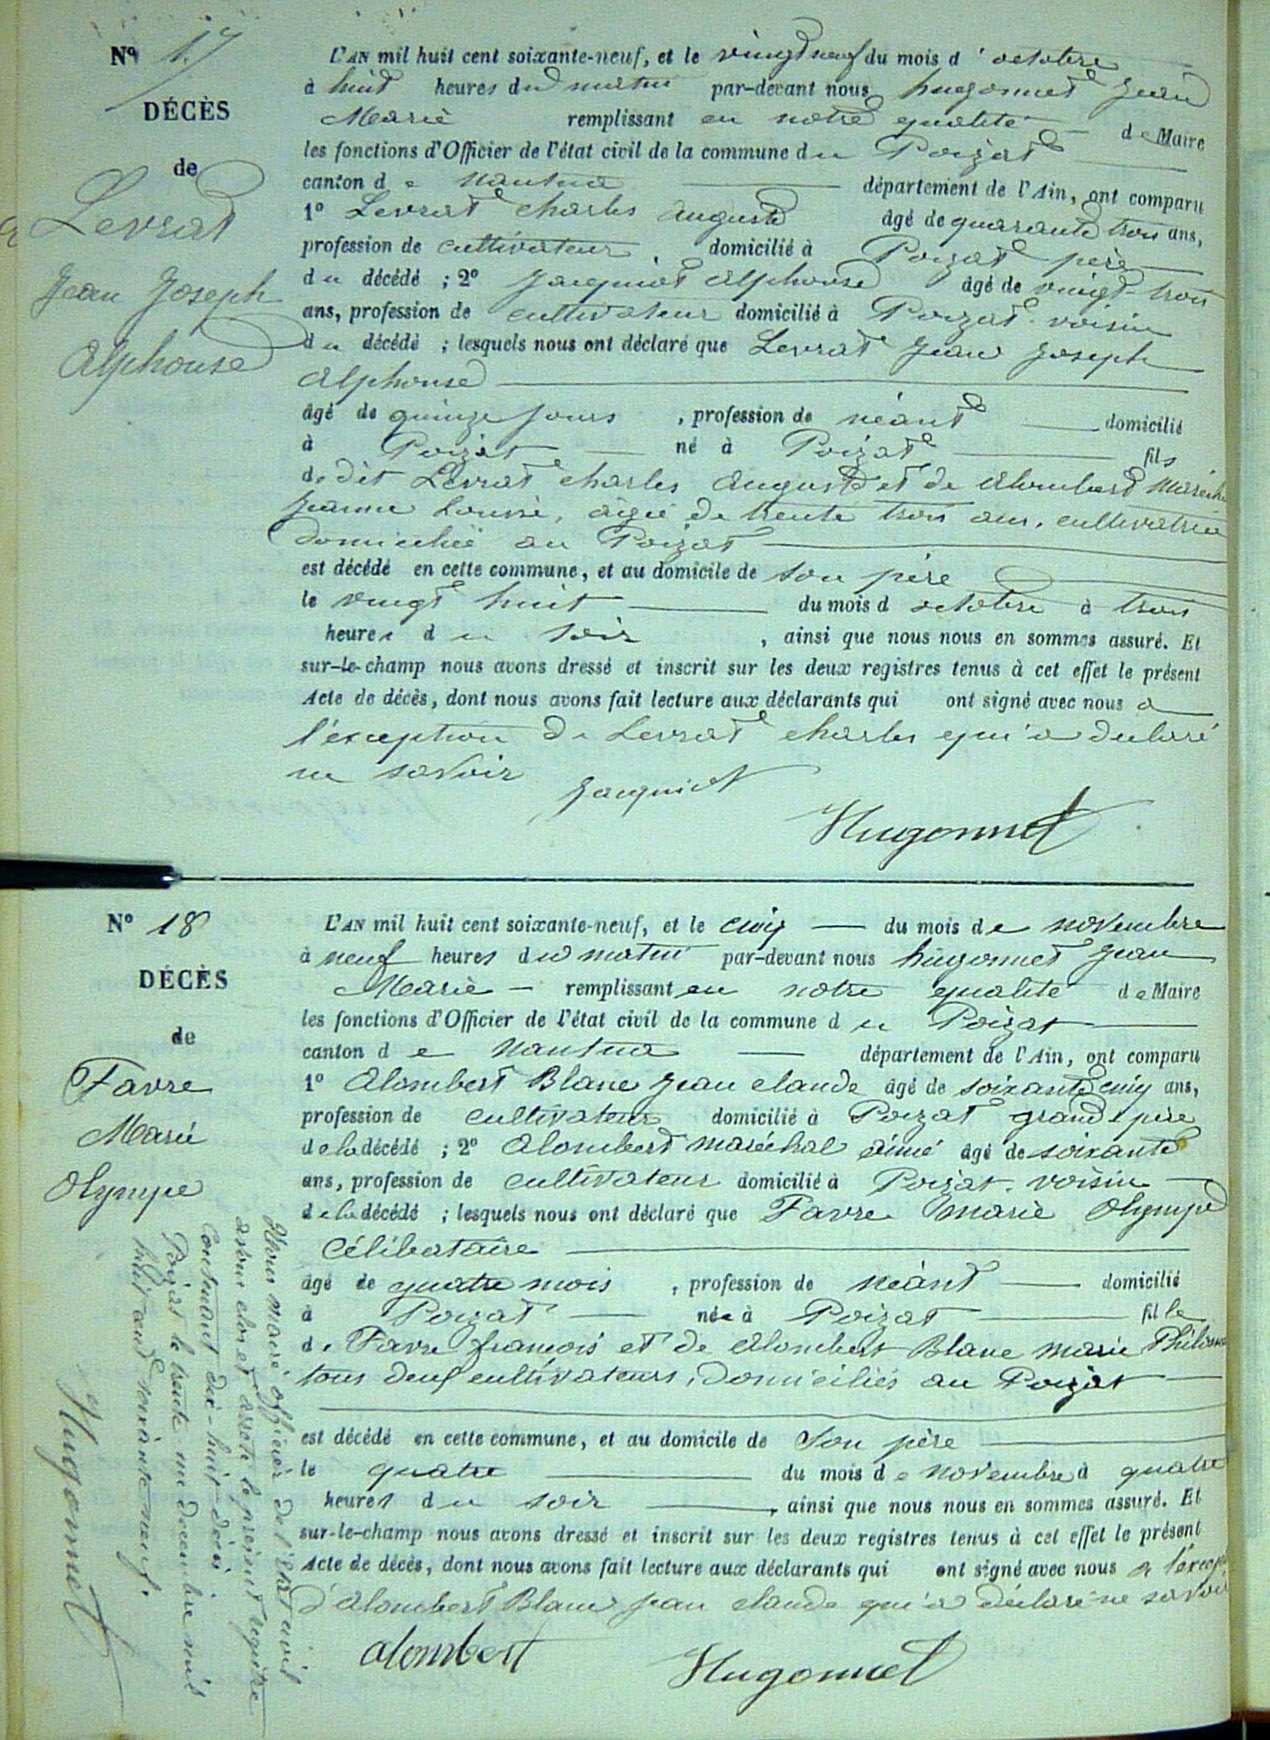 Nº 17
DÉCÈS
de
Levrat
Jean Joseph
Alphonse
L'AN mil huit cent soixante-neuf, et le vingt neuf du mois d'octobre
à huit heures du matin par-devant nous hugonnet Jean
Marie remplissant en notre qualité de Maire
les fonctions d'Officier de l'état civil de la commune du Poizat
canton de Nantua département de l'Ain, ont comparu
1º Levrat charles auguste âgé de quarante trois ans,
profession de cultivateur domicilié à Poizat père
du décédé ; 2º Jacquiot alphonse âgé de vingt trois
ans, profession de cultivateur domicilié à Poizat voisin
du décédé ; lesquels nous ont déclaré que Levrat Jean Joseph
Alphonse
âgé de quinze jours , profession de néant domicilié
à Poizat né à Poizat fils
de dit Levrat charles auguste et de alombert
jeanne Louise, agée de trente trois ans, cultivatrice
domiciliée au Poizat
est décédé en cette commune, et au domicile de son père
le vingt huit du mois d octobre à trois
heures du soir , ainsi que nous nous en sommes assuré. Et
sur-le-champ nous avons dressé et inscrit sur les deux registres tenus à cet effet le présent
Acte de décès, dont nous avons fait lecture aux déclarants qui ont signé avec nous a
l'éxception de Levrat charles qui a declaré
ne savoir
Jacquiot
Hugonnet
Nº 18
DÉCÈS
de
Favre
Marie
Olympe
L'AN mil huit cent soixante-neuf, et le cinq du mois de novembre
à neuf heures du matin par-devant nous hugonnet Jean
Marie remplissant en notre qualité de Maire
les fonctions d'Officier de l'état civil de la commune du Poizat
canton de Nantua département de l'Ain, ont comparu
1º Alombert Blanc Jean claude âgé de soixante cinq ans,
profession de cultivateur domicilié à Poizat grand père
de la décédé ; 2º Alombert maréchal aimé âgé de soixante
ans, profession de cultivateur domicilié à Poizat voisin
de la décédé ; lesquels nous ont déclaré que Favre marie Olympe
Célibataire
âgé de quatre mois , profession de néant domicilié
à Poizat née à Poizat fille
de Favre françois et de Alombert Blanc marie
tous deux cultivateurs, domiciliés au Poizat
est décédé en cette commune, et au domicile de Son père
le quatre du mois de novembre à quatre
heures du soir , ainsi que nous nous en sommes assuré. Et
sur-le-champ nous avons dressé et inscrit sur les deux registres tenus à cet effet le présent
Acte de décès, dont nous avons fait lecture aux déclarants qui ont signé avec nous a
d'alombert Blanc jean claude qui a déclaré ne savoir
alombert
Hugonnet
Nous maire officier de l'Etat civil
avons clos et arrêté le présent registre
contenant dix-huit décès
Poizat le trente un decembre mil
huit cent soixante neuf.
Hugonnet